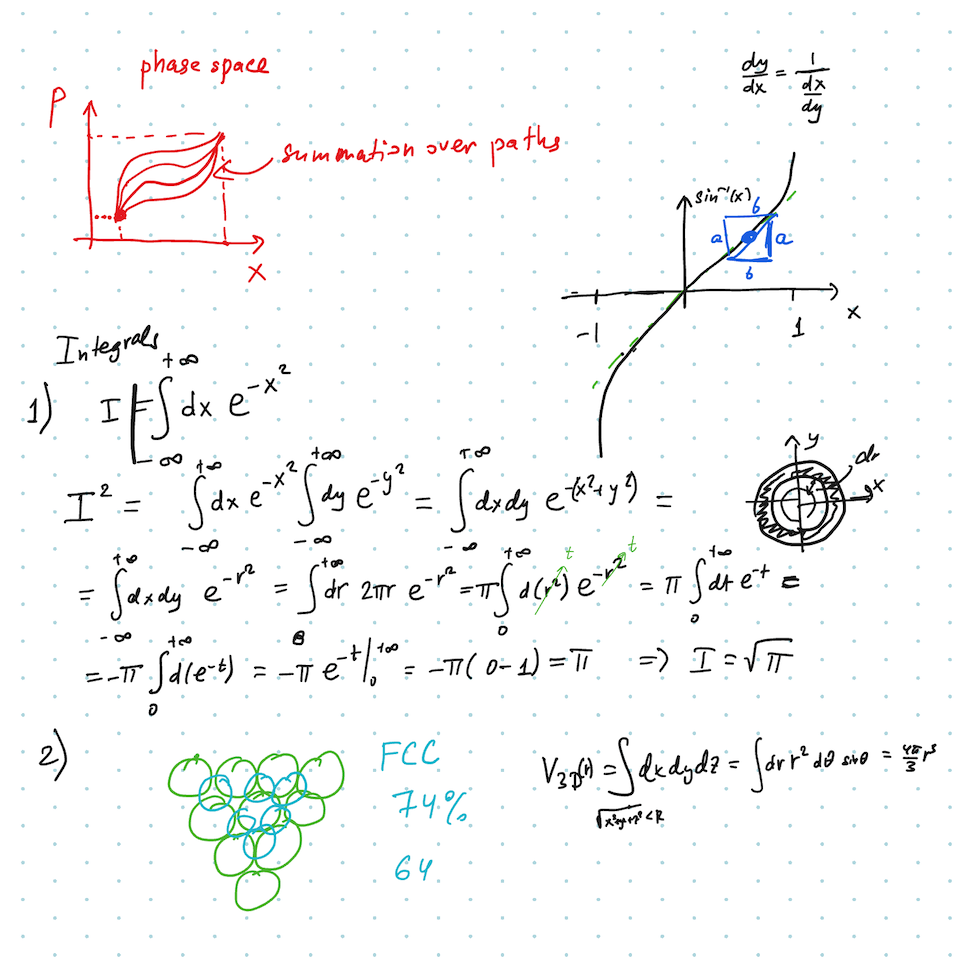 phase space
P
summation over paths
x
dy/dx = 1/(dx/dy)
sin⁻¹(x)
b
a a
b
-1 1 x
Integrals
1) I = ∫_{-∞}^{+∞} dx e^{-x²}
y
dr
x
I² = ∫_{-∞}^{+∞} dx e^{-x²} ∫_{-∞}^{+∞} dy e^{-y²} = ∫_{-∞}^{+∞} dxdy e^{-(x²+y²)} =
= ∫_{-∞}^{+∞} dxdy e^{-r²} = ∫_{0}^{+∞} dr 2πr e^{-r²} = π ∫_{0}^{+∞} d(r²) e^{-r²} = π ∫_{0}^{+∞} dt e^{-t} =
t t
= -π ∫_{0}^{+∞} d(e^{-t}) = -π e^{-t} |_{0}^{+∞} = -π(0-1) = π => I = √π
2)
FCC
74%
64
V_{3D}(r) = ∫_{√(x²+y²+z²) < R} dxdydz = ∫ dr r² dθ sinθ = 4π/3 r³